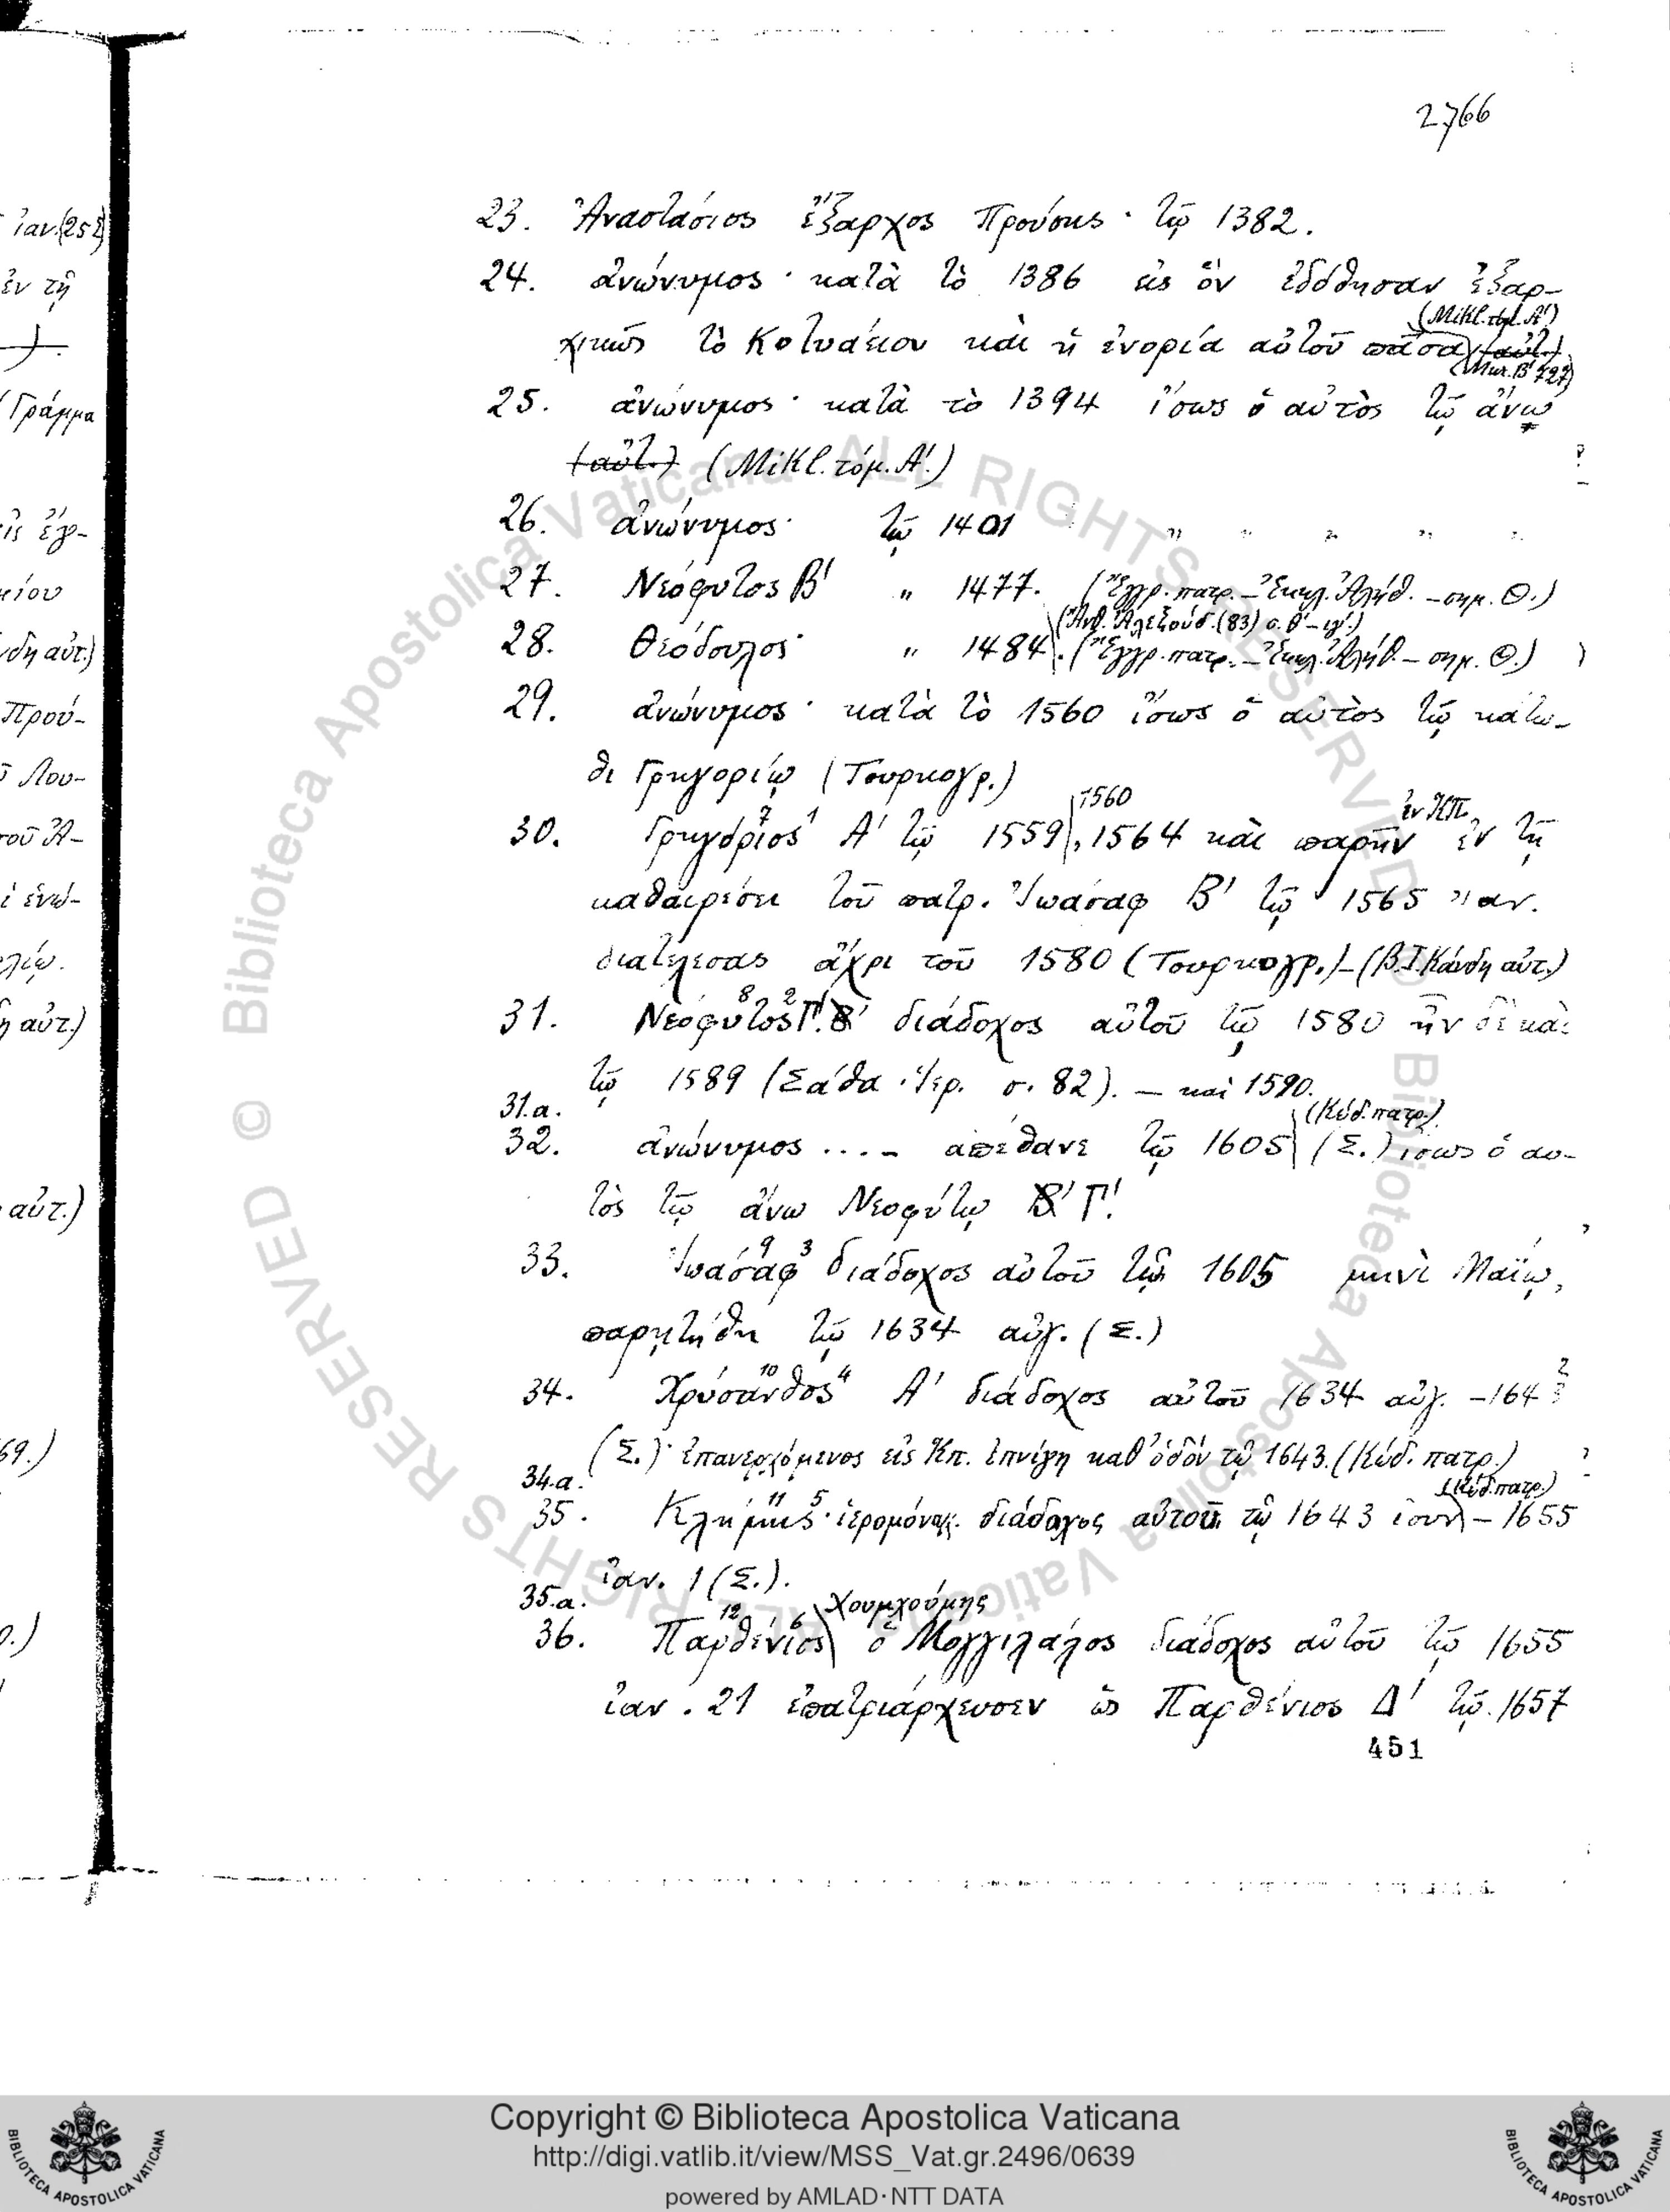 2766
ἰαν.(252)
ἐν τῇ
Γράμμα
κίου
νδη αὐτ.)
Πρού-
Λου-
τοῦ Ἀ-
η αὐτ.)
αὐτ.)
69.)
23. Ἀναστάσιος ἔξαρχος Προύσης · τῷ 1382.
24. ἀνώνυμος · κατὰ τὸ 1386 εἰς ὃν ἐδόθησαν ἐξαρ-
(Mikl. τομ. Α΄)
χικῶς τὸ Κοτυάειον καὶ ἡ ἐνορία αὐτοῦ πᾶσα (αὐτ.)
25. ἀνώνυμος · κατὰ τὸ 1394 ἴσως ὁ αὐτὸς τῷ ἄνω
(αὐτ.) (Mikl. τόμ. Α΄.)
26. ἀνώνυμος · τῷ 1401 " " " " "
27. Νεόφυτος Β΄ " 1477. (Ἔγγρ. πατρ. – Ἐκκλ. Ἀλήθ. – σημ. Θ.)
(Ἀνθ. Ἀλεξούδ. (83) σ. θ΄ – ιγ΄.)
28. Θεόδουλος · " 1484. (Ἔγγρ. πατρ. – Ἐκκλ. Ἀλήθ. – σημ. Θ.)
29. ἀνώνυμος · κατὰ τὸ 1560 ἴσως ὁ αὐτὸς τῷ κάτω-
θι Γρηγορίῳ (Τουρκογρ.)
1560 ἐν Κπ.
30. Γρηγόριος Α΄ τῷ 1559, 1564 καὶ παρῆν ἐν τῇ
καθαιρέσει τοῦ πατρ. Ἰωάσαφ Β΄ τῷ 1565 ἰαν.
διατελέσας ἄχρι τοῦ 1580 (Τουρκογρ.) – (Β.Ι. Κάνδη αὐτ.)
8 2
31. Νεόφυτος Γ΄. Β΄ διάδοχος αὐτοῦ τῷ 1580 ἦν δὲ καὶ
τῷ 1589 (Σάθα · Ἱερ. σ. 82). – καὶ 1590.
31.α. (Κώδ. πατρ.)
32. ἀνώνυμος .... ἀπέθανε τῷ 1605 (Σ.) ἴσως ὁ αὐ-
τὸς τῷ ἄνω Νεοφύτῳ Β΄ Γ΄.
9 3
33. Ἰωάσαφ διάδοχος αὐτοῦ τῷ 1605 μηνὶ Μαΐῳ,
παρῃτήθη τῷ 1634 αὐγ. (Σ.)
10 4
34. Χρύσανθος Α΄ διάδοχος αὐτοῦ 1634 αὐγ. – 1643
(Σ.) · ἐπανερχόμενος εἰς Κπ. ἐπνίγη καθ' ὁδόν τῷ 1643. (Κώδ. πατρ.)
34.α. 11 5 (Κώδ. πατρ.)
35. Κλήμης · ἱερομόναχ. διάδοχος αὐτοῦ τῷ 1643 ἰουλ – 1655
ἰαν. 1 (Σ.).
35.α. 12 6 Χουμχούμης
36. Παρθένιος ὁ Μογγιλάλος διάδοχος αὐτοῦ τῷ 1655
ἰαν. 21 ἐπατριάρχευσεν ὡς Παρθένιος Δ΄ τῷ 1657
451
© Biblioteca Apostolica Vaticana ALL RIGHTS RESERVED
© Biblioteca Apostolica Vaticana ALL RIGHTS RESERVED
Copyright © Biblioteca Apostolica Vaticana
http://digi.vatlib.it/view/MSS_Vat.gr.2496/0639
powered by AMLAD·NTT DATA
BIBLIOTECA APOSTOLICA VATICANA
BIBLIOTECA APOSTOLICA VATICANA